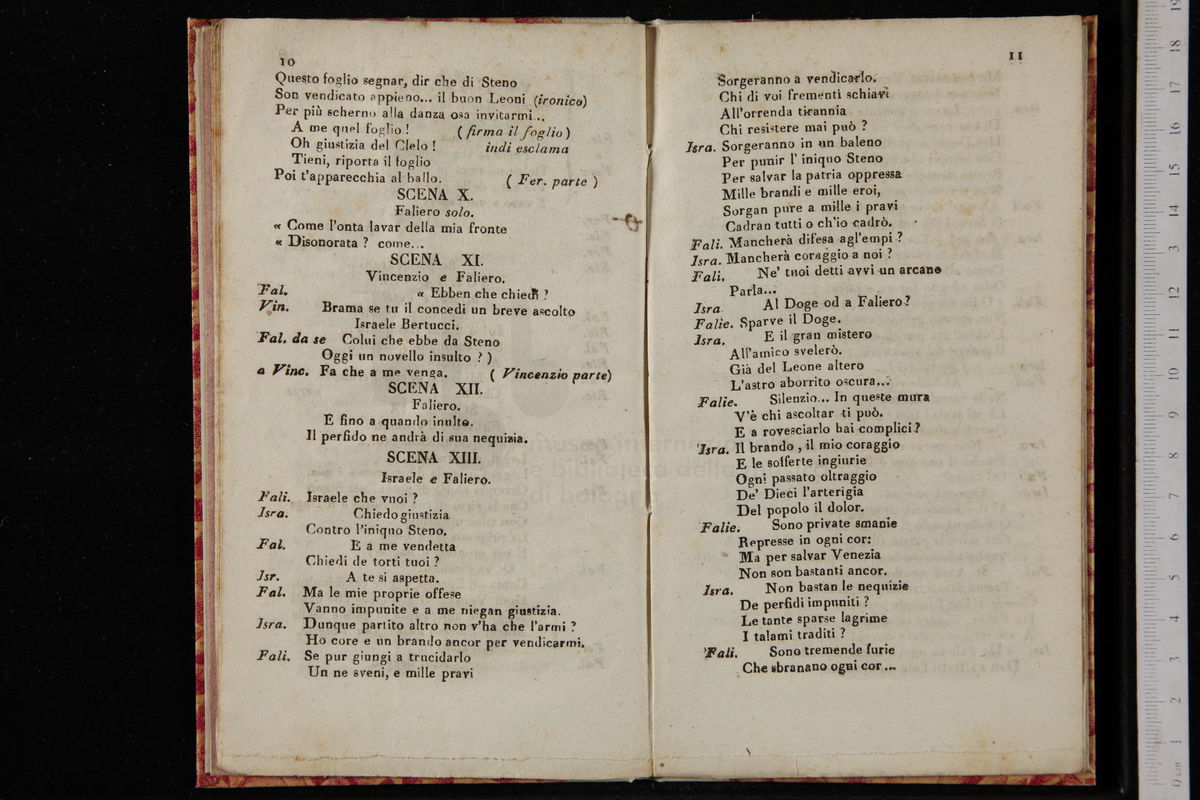 10
Questo foglio segnar, dir che di Steno
Son vendicato appieno... il buon Leoni (ironico)
Per più scherno alla danza osa invitarmi...
A me quel foglio ! ( firma il foglio )
Oh giustizia del CIelo ! indi esclama
Tieni, riporta il foglio
Poi t'apparecchia al ballo. ( Fer. parte )
SCENA X.
Faliero solo.
« Come l'onta lavar della mia fronte
« Disonorata ? come...
SCENA XI.
Vincenzio e Faliero.
Fal. « Ebben che chiedi ?
Vin. Brama se tu il concedi un breve ascolto
Israele Bertucci.
Fal. da se Colui che ebbe da Steno
Oggi un novello insulto ? )
a Vinc. Fa che a me venga. ( Vincenzio parte)
SCENA XII.
Faliero.
E fino a quando inulto.
Il perfido ne andrà di sua nequizia.
SCENA XIII.
Israele e Faliero.
Fali. Israele che vuoi ?
Isra. Chiedo giustizia
Contro l'iniquo Steno.
Fal. E a me vendetta
Chiedi de torti tuoi ?
Isr. A te si aspetta.
Fal. Ma le mie proprie offese
Vanno impunite e a me niegan giustizia.
Isra. Dunque partito altro non v'ha che l'armi ?
Ho core e un brando ancor per vendicarmi.
Fali. Se pur giungi a trucidarlo
Un ne sveni, e mille pravi
11
Sorgeranno a vendicarlo.
Chi di voi frementi schiavi
All'orrenda tirannia
Chi resistere mai può ?
Isra. Sorgeranno in un baleno
Per punir l' iniquo Steno
Per salvar la patria oppressa
Mille brandi e mille eroi,
Sorgan pure a mille i pravi
Cadran tutti o ch'io cadrò.
Fali. Mancherà difesa agl'empi ?
Isra. Mancherà coraggio a noi ?
Fali. Ne' tuoi detti avvi un arcano
Parla...
Isra. Al Doge od a Faliero?
Falie. Sparve il Doge.
Isra. E il gran mistero
All'amico svelerò.
Già del Leone altero
L'astro aborrito oscura...
Falie. Silenzio... In queste mura
V'è chi ascoltar ti può.
E a rovesciarlo hai complici ?
Isra. Il brando , il mio coraggio
E le sofferte ingiurie
Ogni passato oltraggio
De' Dieci l'arterigia
Del popolo il dolor.
Falie. Sono private smanie
Represse in ogni cor:
Ma per salvar Venezia
Non son bastanti ancor.
Isra. Non bastan le nequizie
De perfidi impuniti ?
Le tante sparse lagrime
I talami traditi ?
Fali. Sono tremende furie
Che sbranano ogni cor...